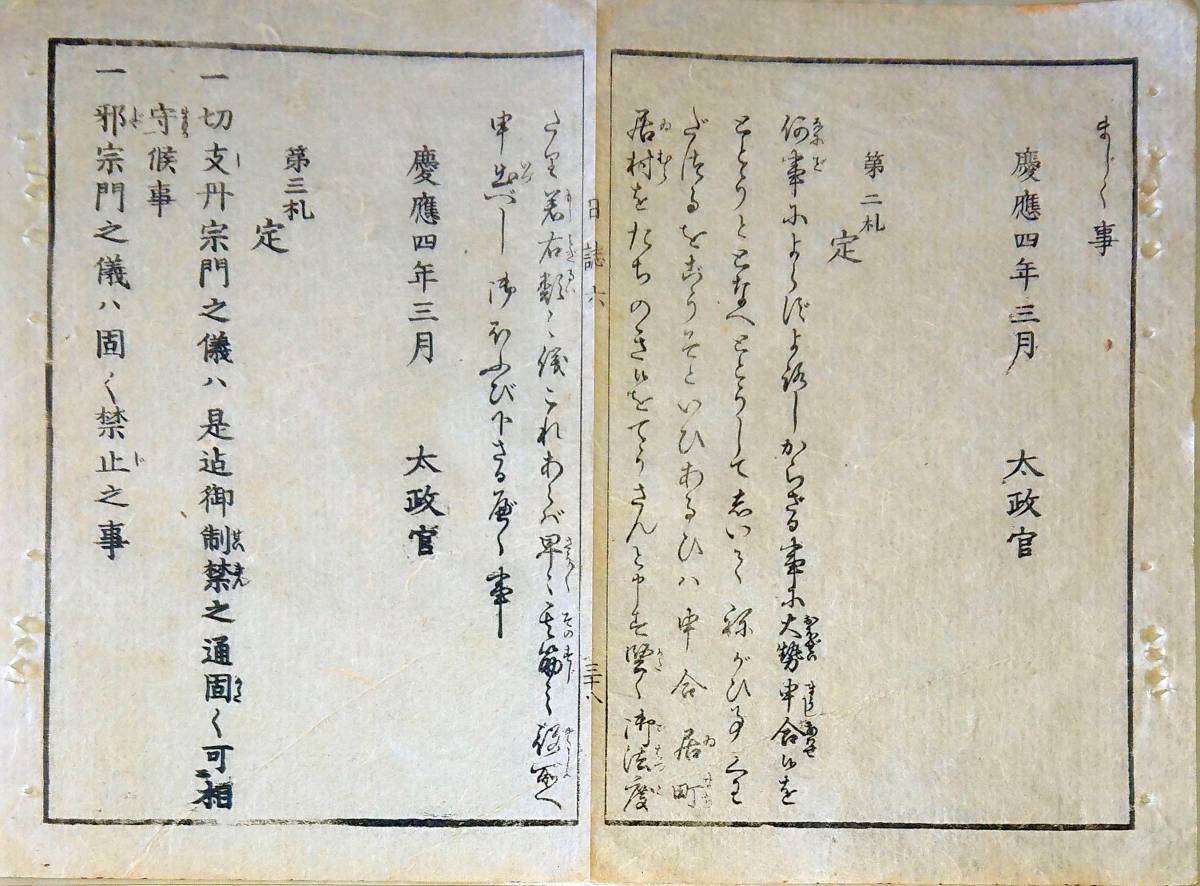 まじく事
慶應四年三月 太政官
第二札
定
何事によらずよろしからざる事に大勢申合候を
ととうととなへととうしてしいてねがひ事くわ
だつるをごうそといひあるひハ申合居町
居村をたちのき候をてうさんと申す堅く御法度
たり若右類之儀これあらバ早々其筋之役所へ
申出べし御ほふび下さるべく事
慶應四年三月 太政官
第三札
定
一切支丹宗門之儀ハ是迠御制禁之通固く可相
守候事
一邪宗門之儀ハ固く禁止之事
日誌六
三十八